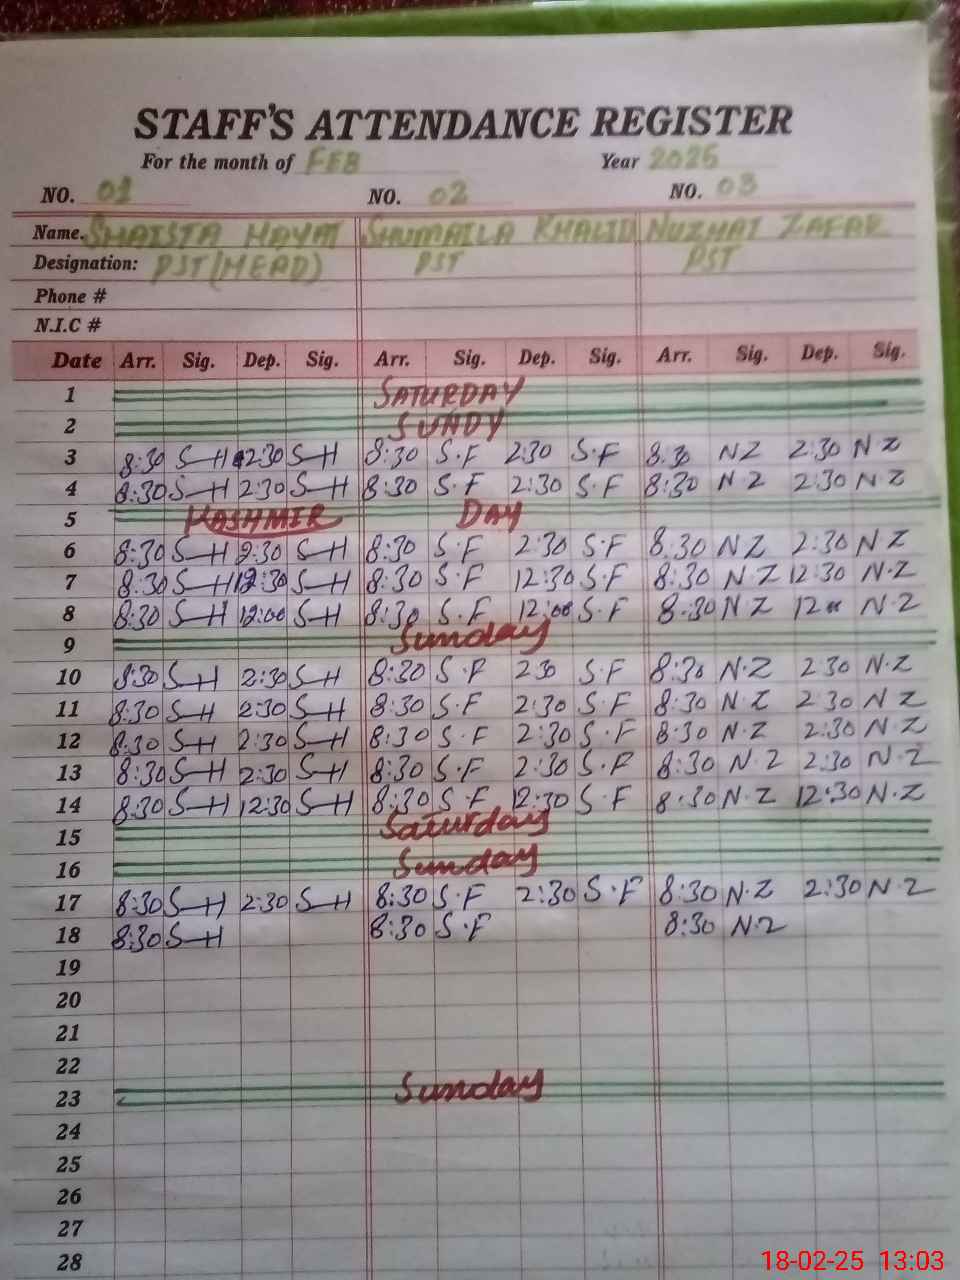 STAFF'S ATTENDANCE REGISTER
For the month of FEB Year 2025
NO. 01 NO. 02 NO. 03
Name. SHAISTA HAYAT SHUMAILA KHALID NUZHAT ZAFAR
Designation: PST (HEAD) PST PST
Phone #
N.I.C #
Date Arr. Sig. Dep. Sig. Arr. Sig. Dep. Sig. Arr. Sig. Dep. Sig.
1 SATURDAY
2 SUNDY
3 8:30 S-H 2:30 S-H 8:30 S.F 2:30 S.F 8:30 NZ 2:30 N-Z
4 8:30 S-H 2:30 S-H 8:30 S.F 2:30 S.F 8:30 N.Z 2:30 N.Z
5 KASHMIR DAY
6 8:30 S-H 2:30 S-H 8:30 S.F 2:30 S.F 8.30 NZ 2:30 N-Z
7 8:30 S-H 12:30 S-H 8:30 S.F 12:30 S.F 8:30 N.Z 12:30 N.Z
8 8:30 S-H 12:00 S-H 8:30 S.F 12:00 S.F 8.30 N Z 12 00 N.Z
9 Sunday
10 8:30 S-H 2:30 S-H 8:30 S.F 230 S.F 8:30 N.Z 2:30 N.Z
11 8:30 S-H 2:30 S-H 8:30 S.F 2:30 S.F 8:30 N.Z 2:30 N Z
12 8:30 S-H 2:30 S-H 8:30 S.F 2:30 S.F 8:30 N.Z 2:30 N.Z
13 8:30 S-H 2:30 S-H 8:30 S.F 2:30 S.F 8:30 N.Z 2:30 N.Z
14 8:30 S-H 12:30 S-H 8:30 S.F 12:30 S.F 8.30 N.Z 12:30 N.Z
15 Saturday
16 Sunday
17 8:30 S-H 2:30 S-H 8:30 S.F 2:30 S.F 8:30 N.Z 2:30 N.Z
18 8:30 S-H 8:30 S.F 8:30 N.Z
19
20
21
22
23 Sunday
24
25
26
27
28
18-02-25 13:03